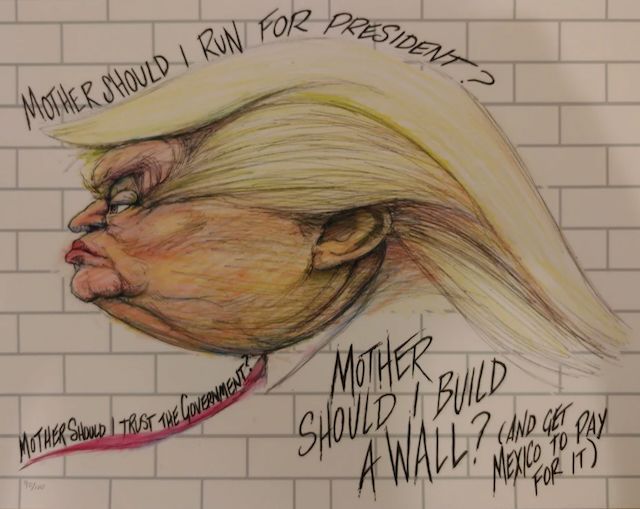 MOTHER SHOULD I RUN FOR PRESIDENT?
MOTHER SHOULD I TRUST THE GOVERNMENT?
MOTHER
SHOULD I BUILD
A WALL?
(AND GET
MEXICO TO PAY
FOR IT)